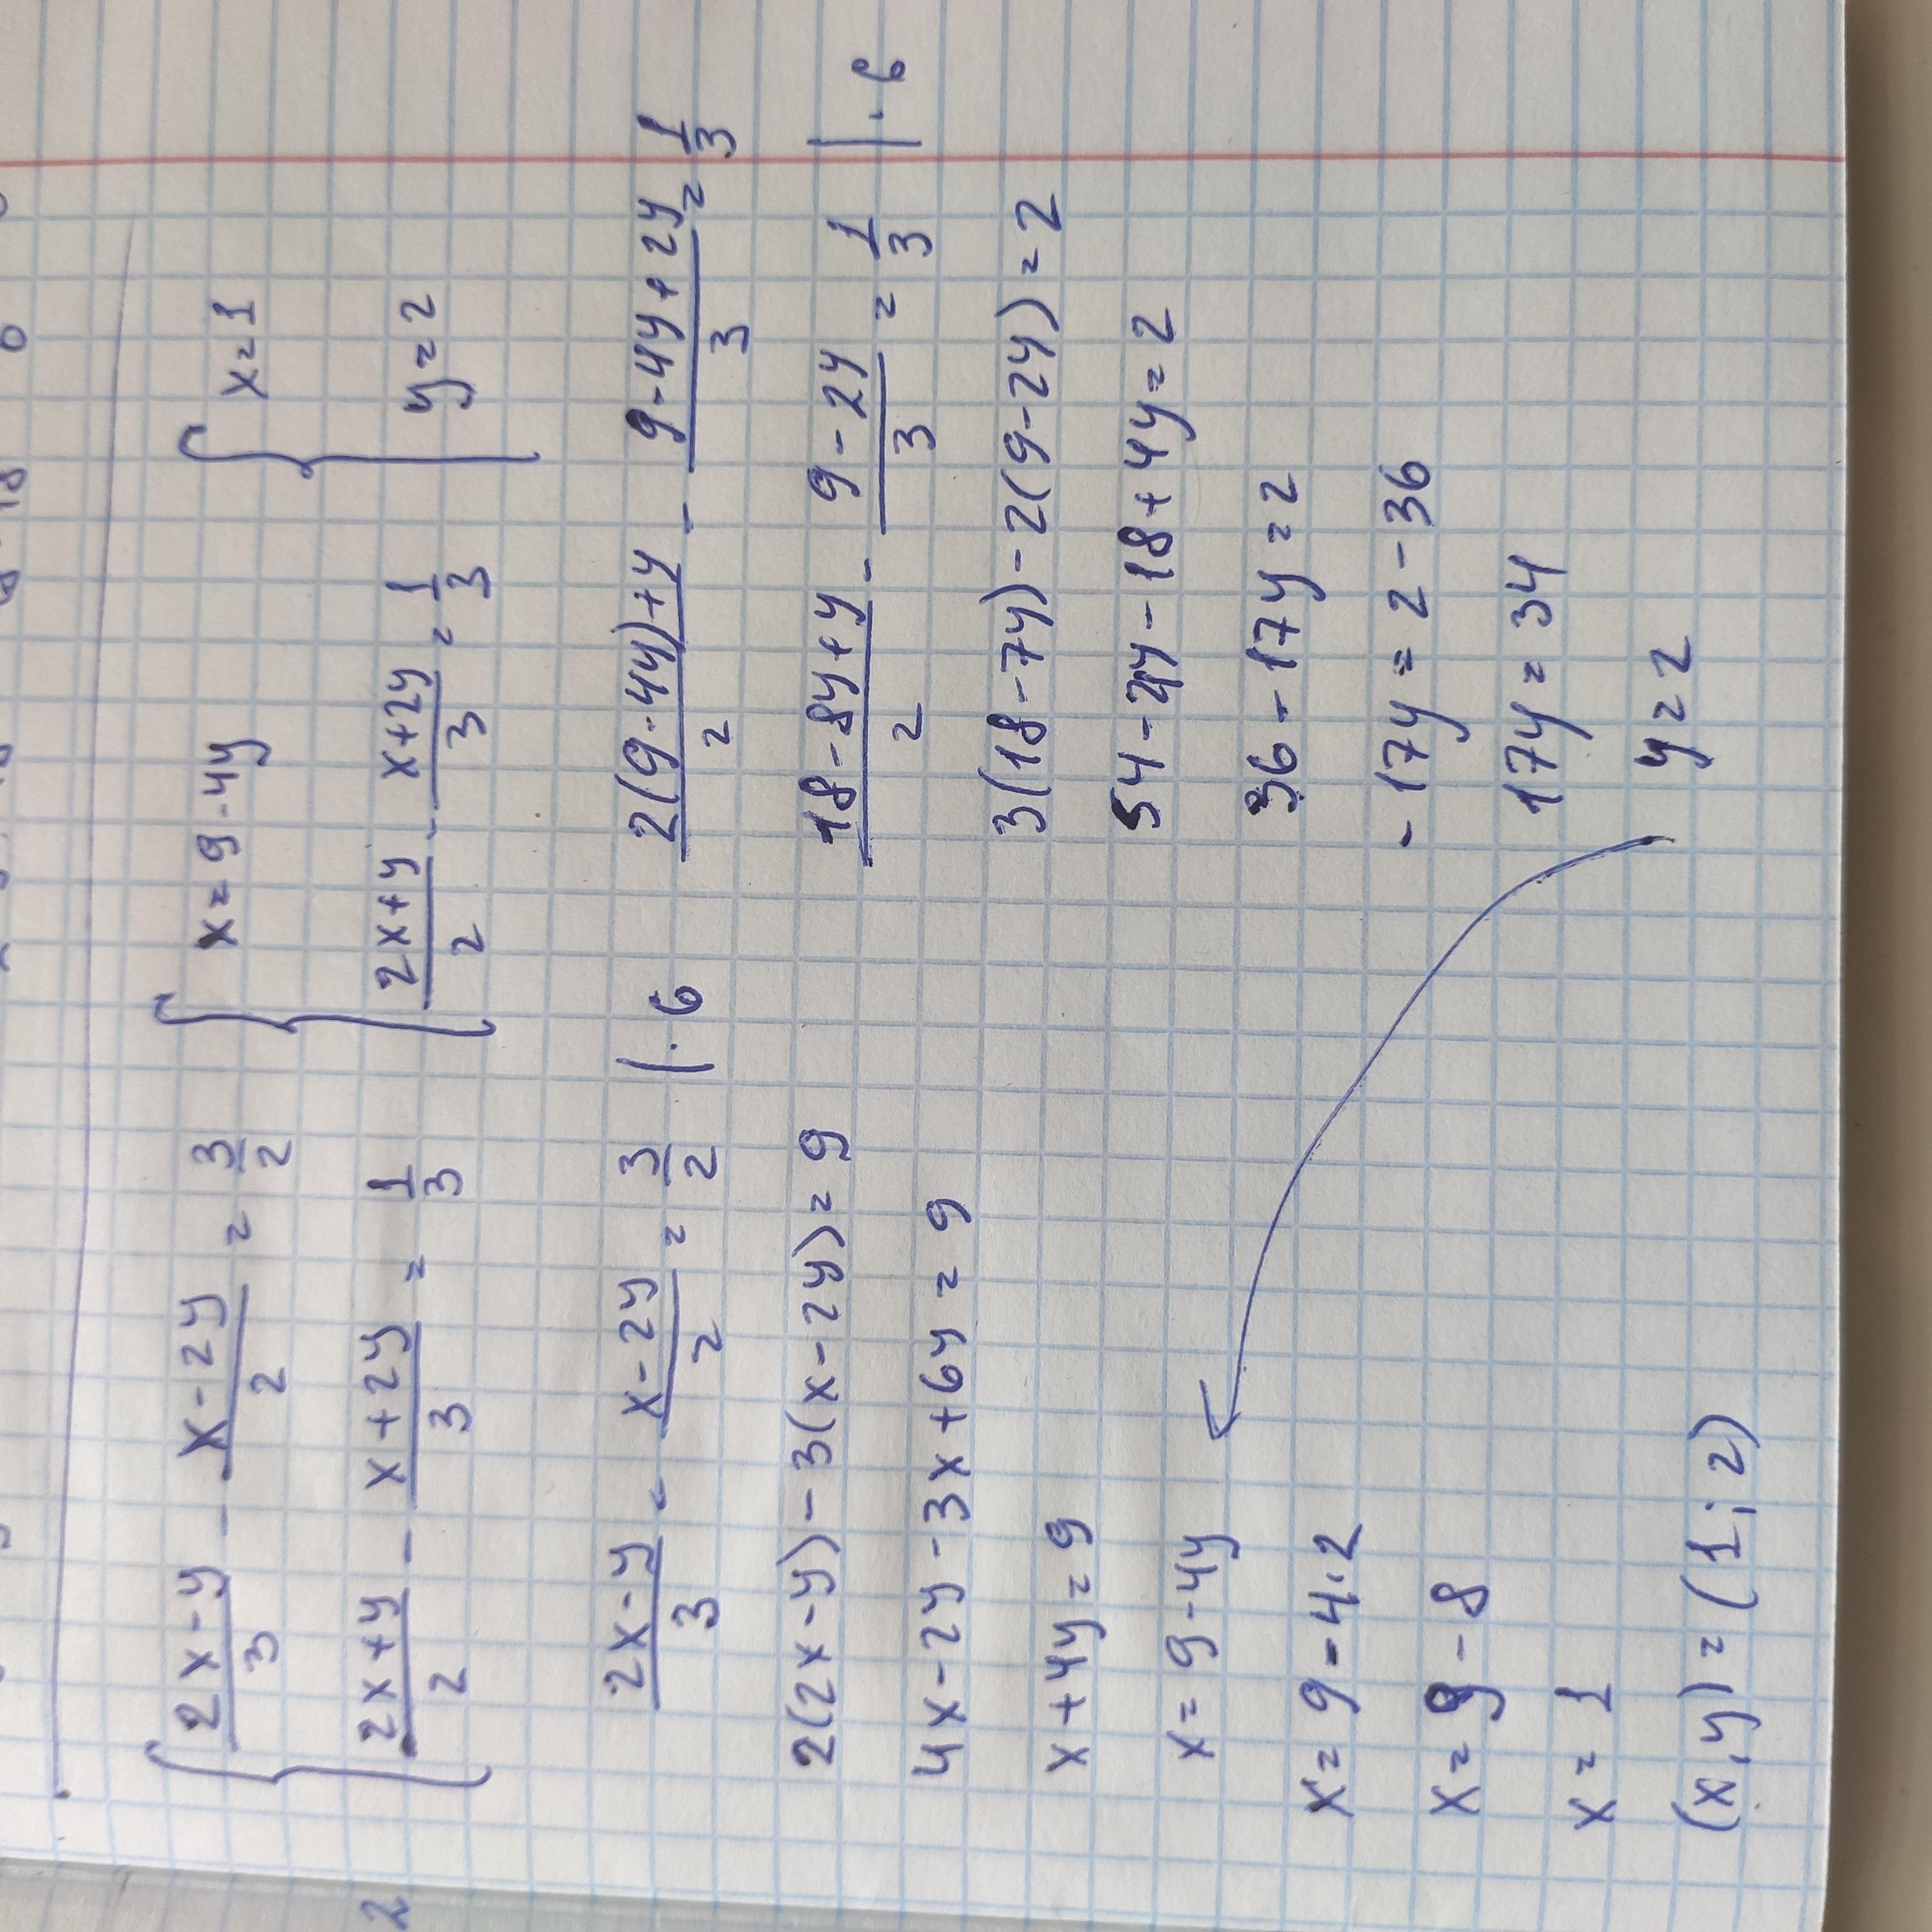 { (2x-y)/3 - (x-2y)/2 = 3/2
{ (2x+y)/2 - (x+2y)/3 = 1/3
{ x=9-4y
{ (2x+y)/2 - (x+2y)/3 = 1/3
{ x=1
{ y=2
2
(2x-y)/3 - (x-2y)/2 = 3/2 |·6
2(2x-y)-3(x-2y)=9
4x-2y-3x+6y=9
x+4y=9
x=9-4y
x=9-4·2
x=9-8
x=1
(x,y)=(1;2)
(2(9-4y)+y)/2 - (9-4y+2y)/3 = 1/3
(18-8y+y)/2 - (9-2y)/3 = 1/3 |·6
3(18-7y)-2(9-2y)=2
54-21y-18+4y=2
36-17y=2
-17y=2-36
17y=34
y=2